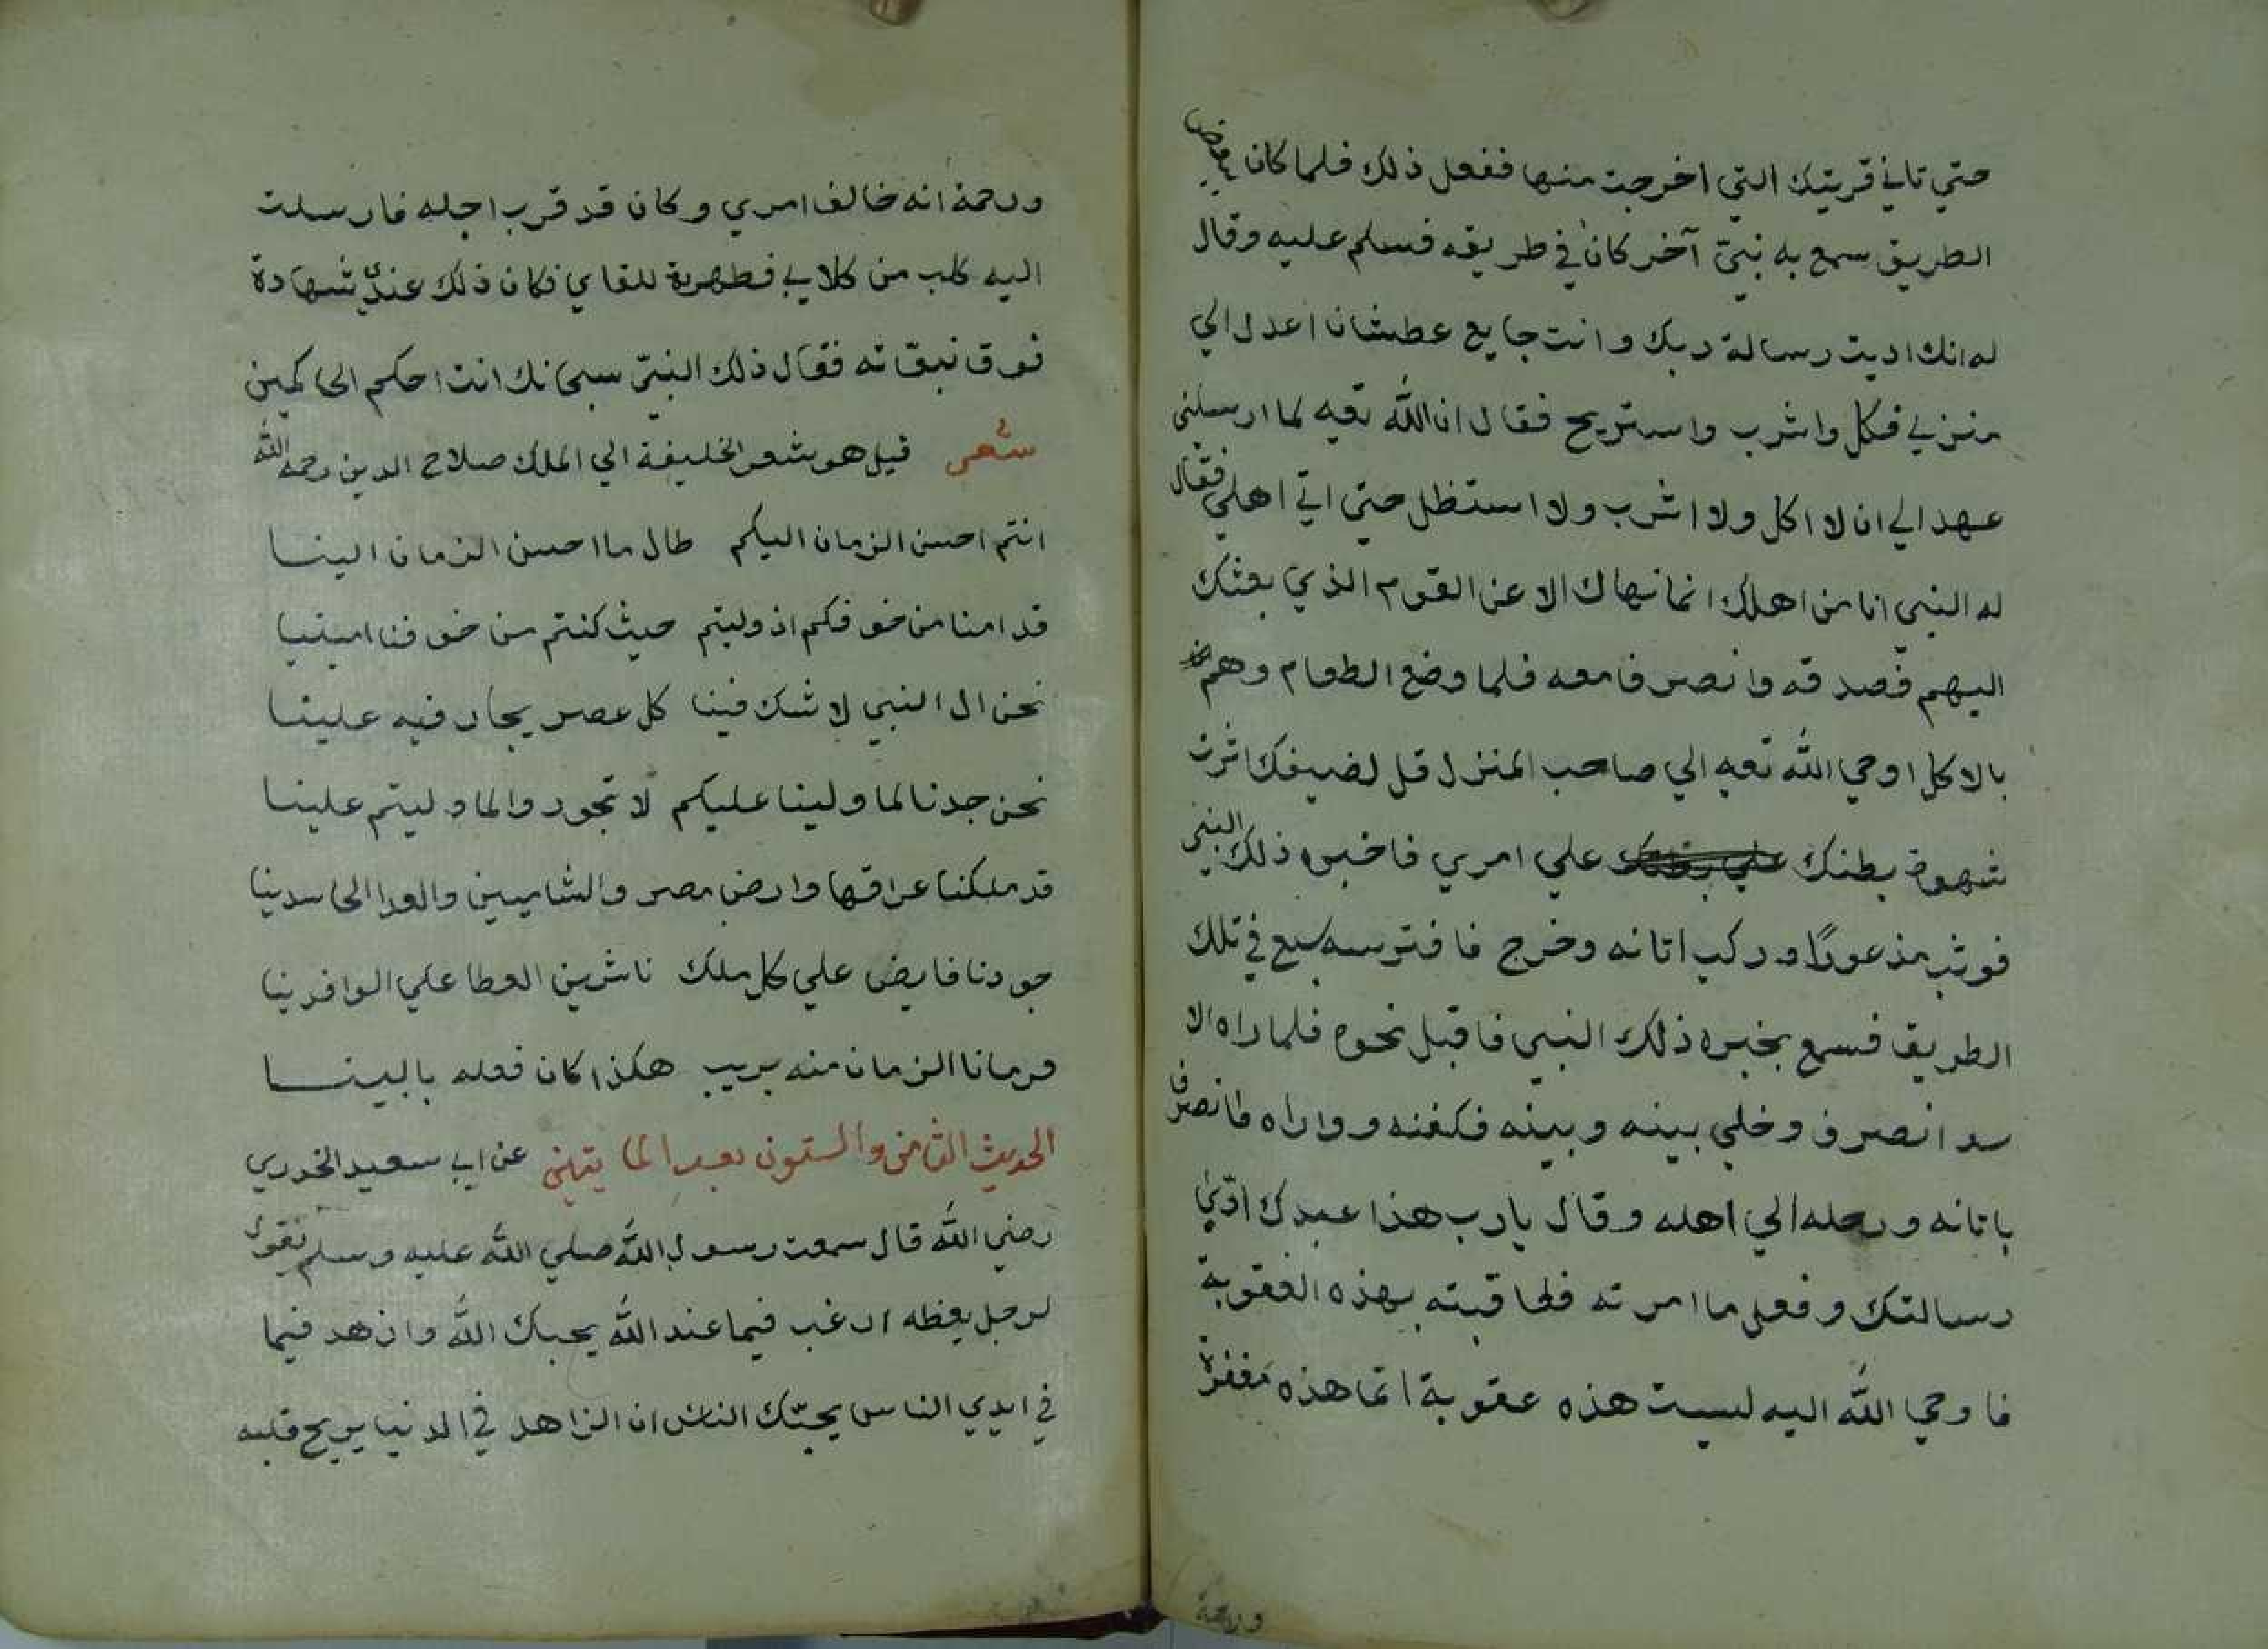 حتي تاتي قريتك التي اخرجت منها ففعل ذلك فلما كان ببعض
الطريق سمع به نبيّ آخر كان في طريقه فسلم عليه وقال
له انك اديت رسالة ربك وانت جايع عطشان اعدل الي
منزلي فكل واشرب واستريح فقال ان الله تعه لما ارسلني
عهد الي ان لا اكل ولا اشرب ولا استظل حتي اتي اهلي فقال
له النبي انا من اهلك انما نهاك الا عن القوم الذي بعثك
اليهم فصدقه وانصرفا معه فلما وضع الطعام وهم
بالاكل اوحي الله تعه الي صاحب المنزل قل لضيفك اثرت
شهوة بطنك علي امري فاخبره ذلك النبي
فوثب مذعورًا وركب اتانه وخرج فافترسه سبع في تلك
الطريق فسمع بخبره ذلك النبي فاقبل نحوه فلما راه الا
سد انصرف وخلي بينه وبينه فكفنه وواراه وانصرف
باتانه ورحله الي اهله وقال يارب هذا عبدك ادّي
رسالتك وفعل ما امرته فعاقبته بهذه العقوبة
فاوحي الله اليه ليست هذه عقوبة انما هذه مغفرة
ورحمة
ورحمة انه خالف امري وكان قد قرب اجله فارسلت
اليه كلب من كلابي فطهرته للقاي فكان ذلك عندي شهادة
فوق نبوّاته فقال ذلك النبيّ سبحانك انت احكم الحاكمين
شعر قيل هو شعر الخليفة الي الملك صلاح الدين رحمه الله
انتم احسن الزمان اليكم طال ما احسن الزمان الينا
قد امنا من خوفكم اذ وليتم حيث كنتم من خوفنا امنينا
نحن ال النبي لا شك فينا كل عصر يجار فيه علينا
نحن جدنا لما ولينا عليكم لا تجور والما وليتم علينا
قد ملكنا عراقها وارض مصر والشاميين والعدا الحاسدينا
جودنا فايض علي كل ملك ناشرين العطا علي الوافدينا
فرمانا الزمان منه بريب هكذا كان فعله بالبينا
الحديث الثامن والستون بعد المايتين عن ابي سعيد الخدري
رضي الله قال سمعت رسول الله صلي الله عليه وسلم يقول
لرجل يعظه ارغب فيما عند الله يحبك الله وازهد فيما
في ايدي الناس يحبّك الناس ان الزاهد في الدنيا يريح قلبه